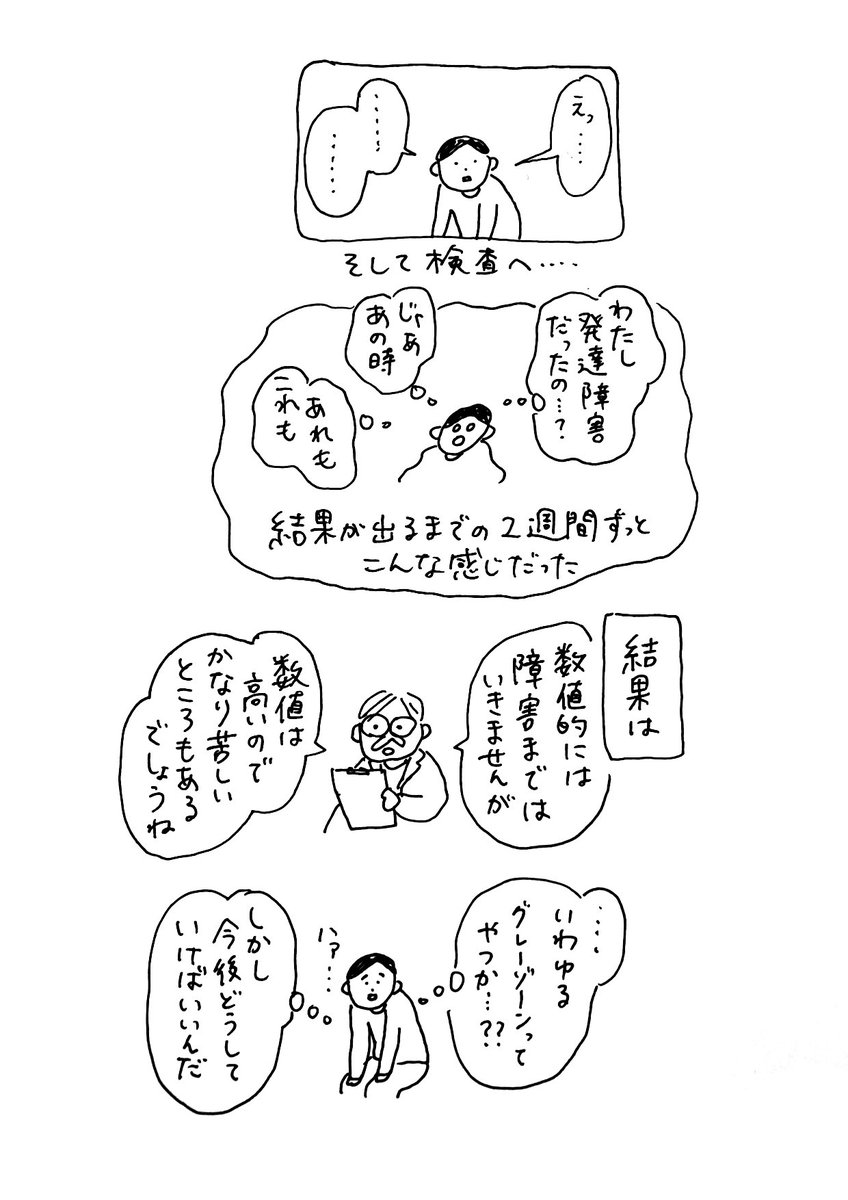 えっ‥‥
‥‥‥
‥‥‥
そして検査へ‥‥
わたし
発達障害
だったの…?
じゃあ
あの時
あれも
これも
結果が出るまでの2週間ずっと
こんな感じだった
結果は
数値的には
障害までは
いきませんが
数値は
高いので
かなり苦しい
ところもある
でしょうね
‥‥
いわゆる
グレーゾーンって
やつか…??
ハァ…
しかし
今後どうして
いけばいいんだ